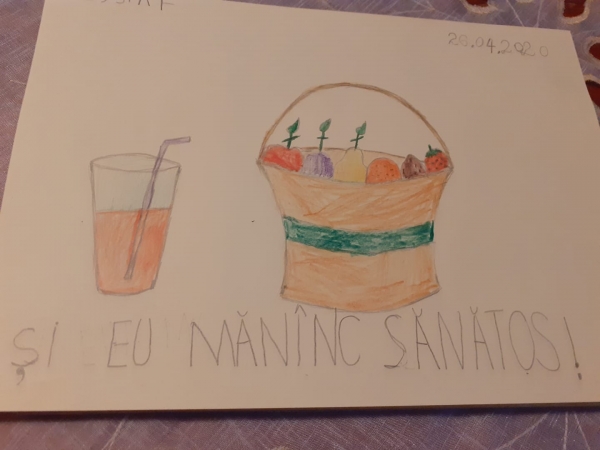 20.04.2020
ȘI EU MĂNÎNC SĂNĂTOS!